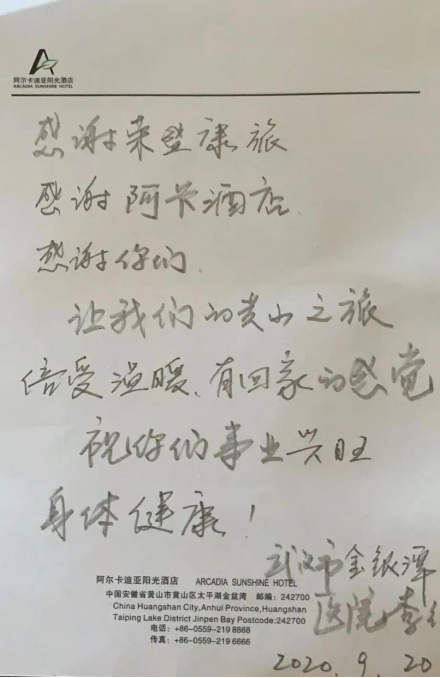 阿尔卡迪亚阳光酒店
ARCADIA SUNSHINE HOTEL
感谢荣登康旅
感谢阿卡酒店
感谢你们
让我们的黄山之旅
倍受温暖、有回家的感觉
祝你们事业兴旺
身体健康!
武汉市金银潭
医院李
2020.9.20
阿尔卡迪亚阳光酒店 ARCADIA SUNSHINE HOTEL
中国安徽省黄山市黄山区太平湖金盆湾 邮编:242700
China Huangshan City,Anhui Province,Huangshan
Taiping Lake District Jinpen Bay Postcode:242700
电话:+86-0559-219 8888
传真:+86-0559-219 6666